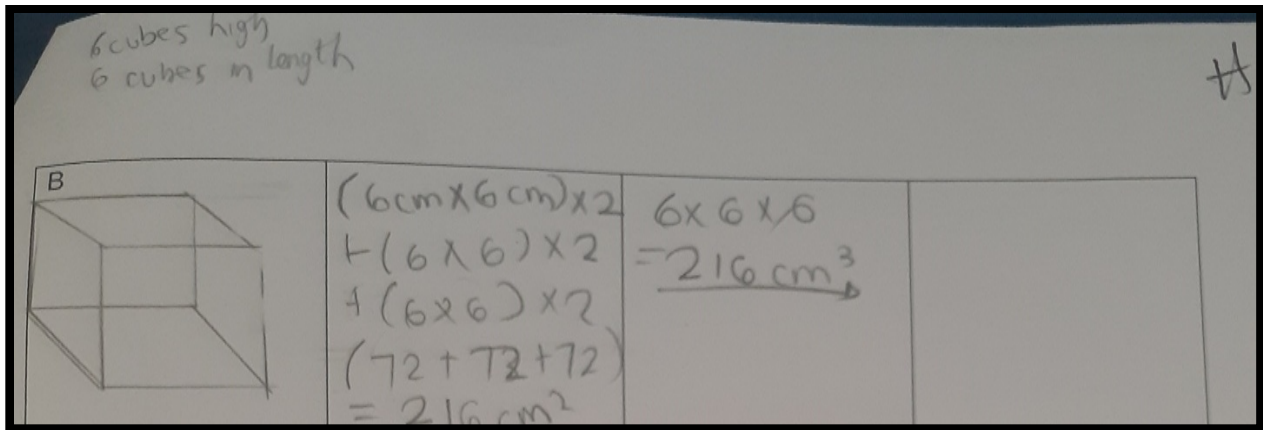 6 cubes high
6 cubes in length
H
B
(6cm×6cm)×2
+(6×6)×2
+(6×6)×2
(72+72+72)
= 216 cm²
6×6×6
=216 cm³